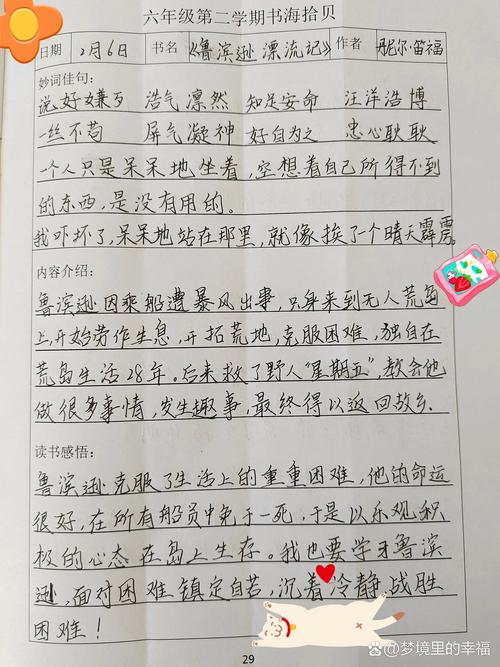 六年级第二学期书海拾贝
日期 2月6日 书名 《鲁滨逊漂流记》 作者 丹尼尔·笛福
妙词佳句:
说好嫌歹 浩气凛然 知足安命 汪洋浩博
一丝不苟 屏气凝神 好自为之 忠心耿耿
一个人只是呆呆地坐着,空想着自己所得不到
的东西,是没有用的。
我吓坏了,呆呆地站在那里,就像挨了一个晴天霹雳。
内容介绍:
鲁滨逊因乘船遭暴风出事,只身来到无人荒岛
上,开始劳作生息,开拓荒地,克服困难,独自在
荒岛生活28年。后来救了野人“星期五”,教会他
做很多事情,发生趣事,最终得以返回故乡.
读书感悟:
鲁滨逊克服了生活上的重重困难,他的命运
很好,在所有船员中免于一死,于是以乐观积
极的心态在岛上生存。我也要学习鲁滨
逊,面对困难镇定自若,沉着冷静战胜
困难!
29
百家号/梦境里的幸福